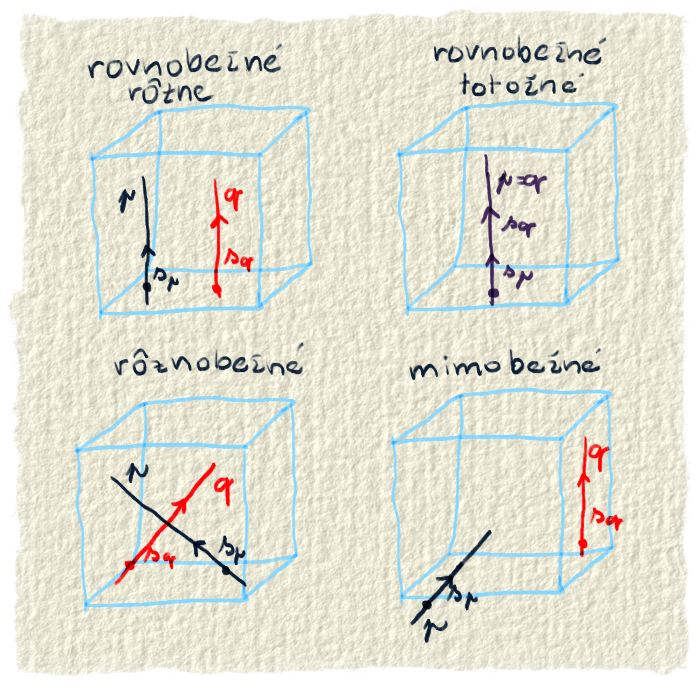 rovnobežné
rôzne
p
q
sp
sq
rovnobežné
totožné
p=q
sq
sp
rôznobežné
p
q
sq
sp
mimobežné
q
sq
sp
p